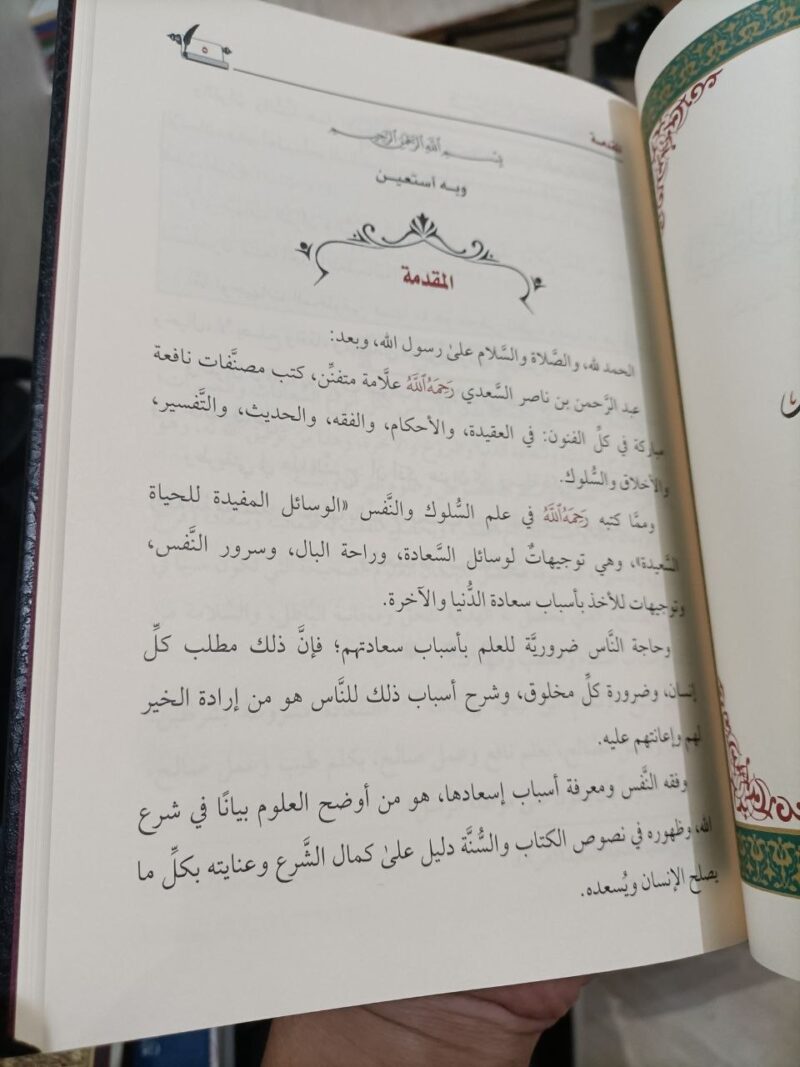 ٥
المقدمة
بسم الله الرحمن الرحيم
وبه أستعين
المقدمة
الحمد لله، والصَّلاة والسَّلام علىٰ رسول الله، وبعد:
عبد الرَّحمن بن ناصر السَّعدي رَحِمَهُ ٱللَّهُ علَّامة متفنِّن، كتب مصنَّفات نافعة
مباركة في كلِّ الفنون: في العقيدة، والأحكام، والفقه، والحديث، والتَّفسير،
والأخلاق والسُّلوك.
وممَّا كتبه رَحِمَهُ ٱللَّهُ في علم السُّلوك والنَّفس «الوسائل المفيدة للحياة
السَّعيدة»، وهي توجيهاتٌ لوسائل السَّعادة، وراحة البال، وسرور النَّفس،
وتوجيهات للأخذ بأسباب سعادة الدُّنيا والآخرة.
وحاجة النَّاس ضروريَّة للعلم بأسباب سعادتهم؛ فإنَّ ذلك مطلب كلِّ
إنسان، وضرورة كلِّ مخلوق، وشرح أسباب ذلك للنَّاس هو من إرادة الخير
لهم وإعانتهم عليه.
وفقه النَّفس ومعرفة أسباب إسعادها، هو من أوضح العلوم بيانًا في شرع
الله، وظهوره في نصوص الكتاب والسُّنَّة دليل علىٰ كمال الشَّرع وعنايته بكلِّ ما
يصلح الإنسان ويُسعده.